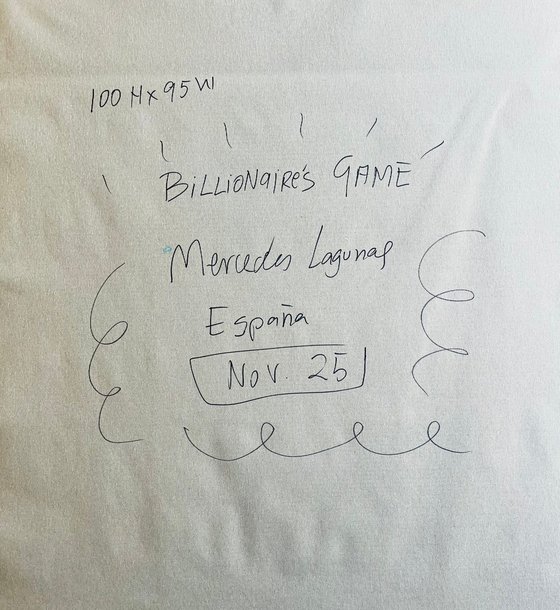 100 H x 95 W
BiLLioNaire's GAME
Mercedes Lagunas
España
Nov. 25